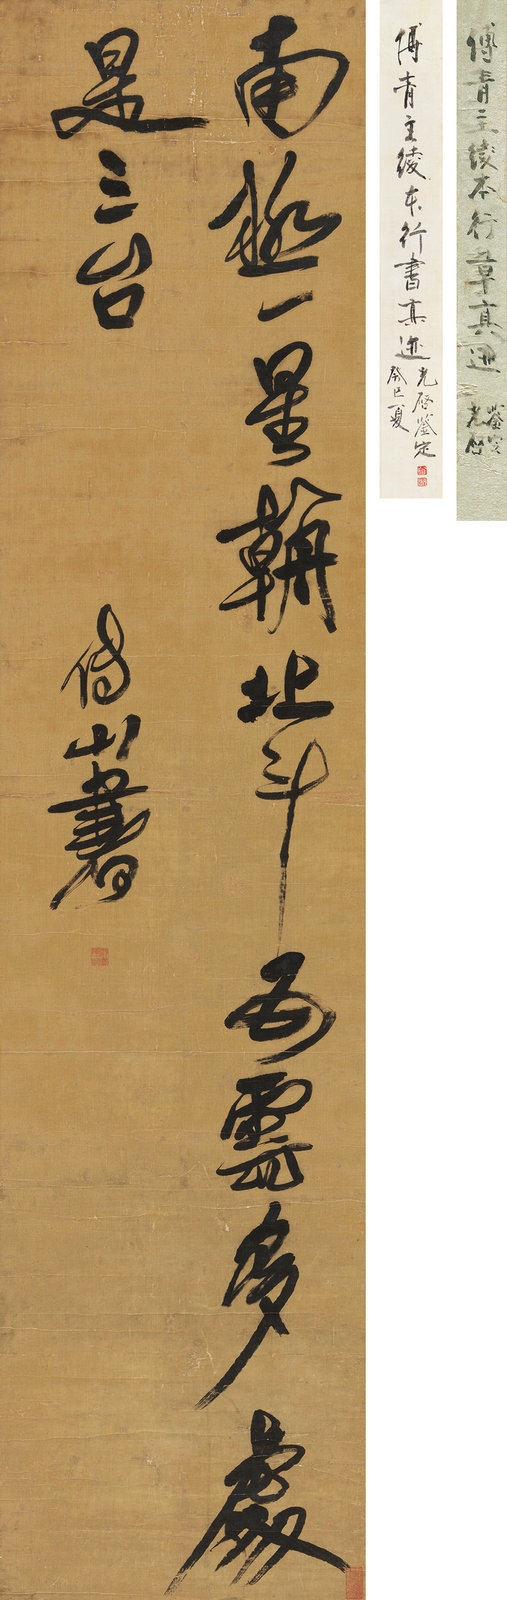 南極一星朝北斗五雲多處
是三台
傅山書
傅青主綾本行書真迹
光啓鑒定
癸巳夏
傅青主綾本行草真迹
鑒定